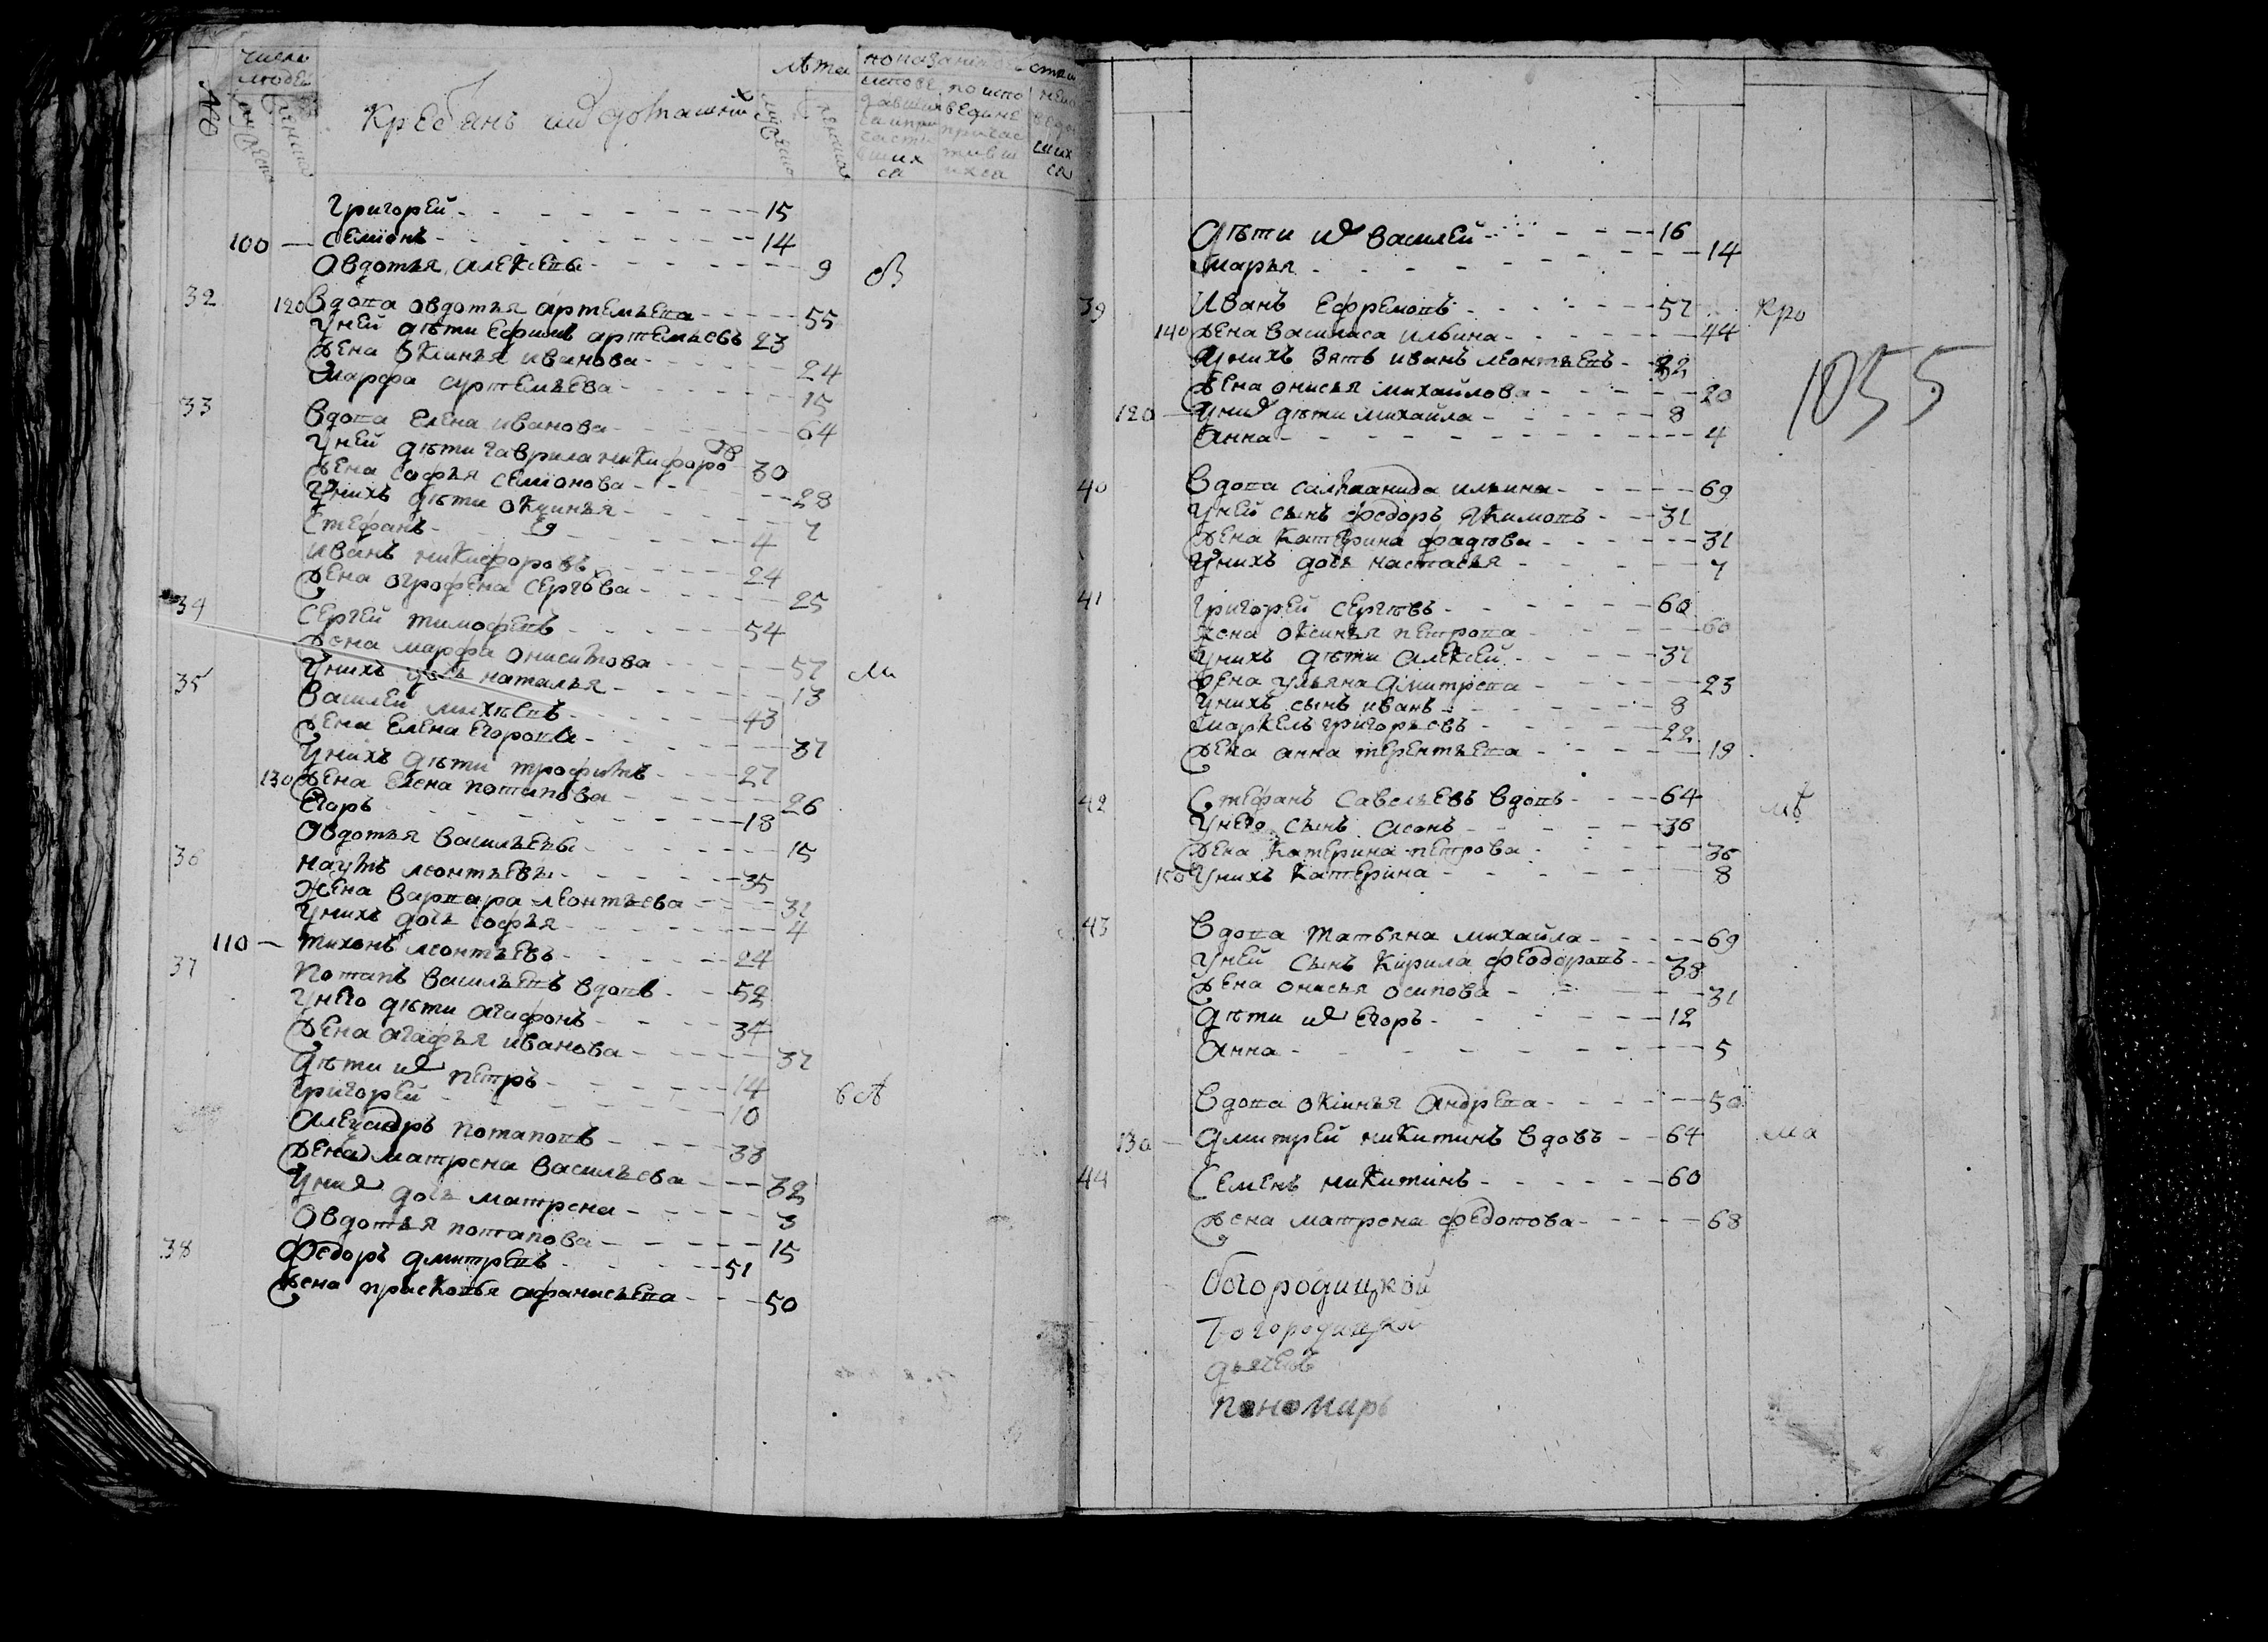 №
число людей
мужеска
женска
Крестьянъ и их домашних
лѣта
мужеска
женска
показание
исповедавшихся и причастившихся
по исповеди не причастившихся
Григорей 15
100 — Семионъ 14
Овдотья Алексева 9
32 120 Вдова Овдотья Артемьева 55
У ней дѣти Ефимъ Артемьевъ 23
Жена Оксинья Иванова 24
Марфа Артемьева 15
33 Вдова Елена Иванова 64
У ней дѣти Гаврила Никифоровъ 30
Жена Софья Семионова 28
У нихъ дѣти Оксинья 7
Стефанъ 4
Иванъ Никифоровъ 24
Жена Огрофена Сергѣва 25
34 Сергей Тимофевъ 54
Жена Марфа Ониситова 57
У нихъ дочь Наталья 13
35 Василей Михѣевъ 43
Жена Елена Егорова 37
У нихъ дѣти Трофимъ 27
130 Жена Елена Потапова 26
Егоръ 18
Овдотья Васильева 15
36 Наумъ Леонтьевъ 35
Жена Варвара Леонтьева 31
У нихъ дочь Софья 4
110 — Тихонъ Леонтьевъ 24
37 Потапъ Васильевъ вдовъ 52
У него дѣти Агафонъ 34
Жена Агафья Иванова 37
Дѣти их Петръ 14
Григорей 10
Александръ Потаповъ 33
Жена Матрена Васильева 32
У них дочь Матрена 3
Овдотья Потапова 15
38 Федоръ Дмитревъ 51
Жена Прасковья Афанасьева 50
Дѣти их Василей 16
Марья 14
39 Иванъ Ефремовъ 57
140 Жена Василиса Ильина 44
У нихъ зять Иванъ Леонтьевъ 22
Жена Онисья Михайлова 20
120 — У них дѣти Михайла 8
Анна 4
1055
40 Вдова Саламанида Ильина 69
У ней сынъ Федоръ Якимовъ 31
Жена Катерина Фадѣева 31
У нихъ дочь Настасья 7
41 Григорей Сергѣвъ 60
Жена Оксинья Петрова 60
У нихъ дѣти Алексей 37
Жена Ульяна Дмитрева 23
У нихъ сынъ Иванъ 8
Маркелъ Григорьевъ 22
Жена Анна Терентьева 19
42 Стефанъ Савельевъ вдовъ 64
У него сынъ Асонъ 36
Жена Катерина Петрова 36
150 У нихъ Катерина 8
43 Вдова Татьяна Михайла 69
У ней сынъ Кирила Феодоровъ 38
Жена Онисья Осипова 31
Дѣти их Егоръ 12
Анна 5
Вдова Оксинья Андрева 50
130 — Дмитрей Никитинъ вдовъ 64
44 Семенъ Никитинъ 60
Жена Матрена Федотова 68
Богородицкой
Богородицкой
дьячекъ
пономарь